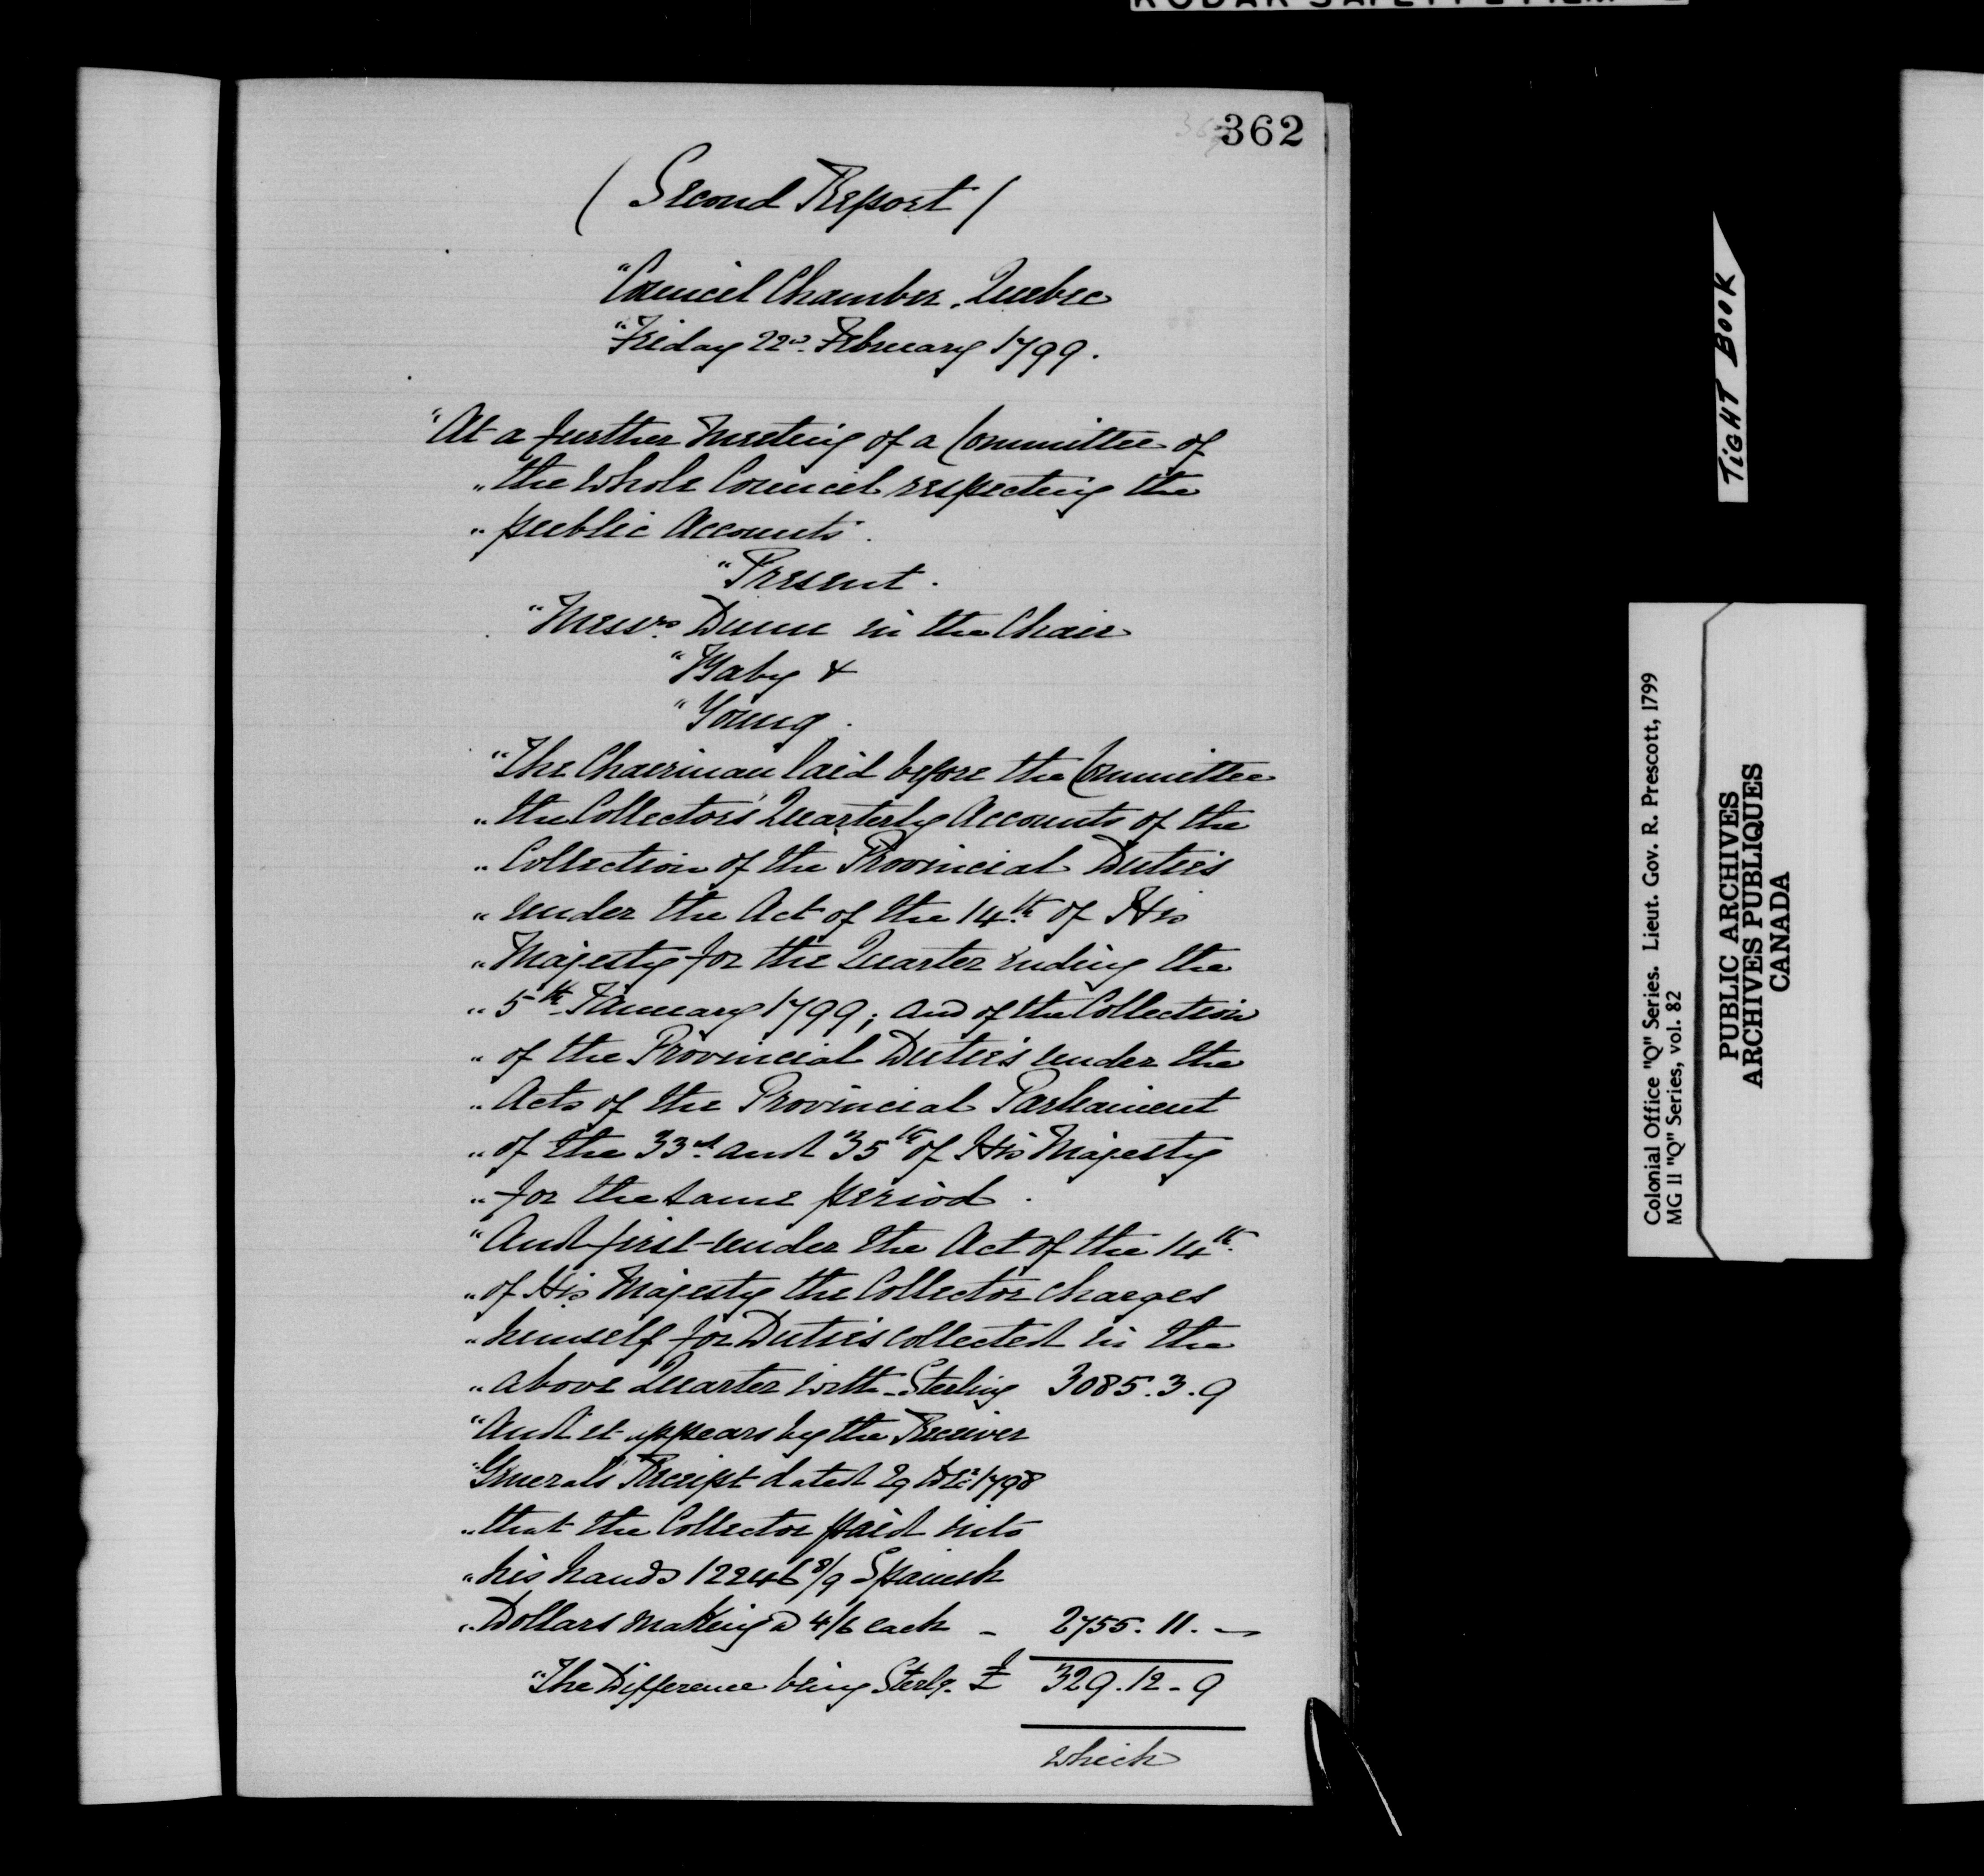 KODAK SAFETY FILM
362
( Second Report /
"Council Chamber, Quebec
"Friday 22d. February 1799.
"At a further Meeting of a Committee of
"the Whole Council respecting the
"public Accounts.
"Present.
"Messrs. Dunn in the Chair
"Baby &
"Young.
"The Chairman laid before the Committee
"the Collector's Quarterly Accounts of the
"Collection of the Provincial Duties
"under the Act of the 14th. of His
"Majesty for the Quarter ending the
"5th. January 1799; and of the Collection
"of the Provincial Duties under the
"Acts of the Provincial Parliament
"of the 33d. and 35th of His Majesty
"for the same period.
"And first under the Act of the 14th.
"of His Majesty the Collector charges
"himself for Duties collected in the
"above Quarter with Sterling 3085.3.9
"And it appears by the Receiver
"Generals Receipt dated 29 Decr. 1798
"that the Collector paid into
"his hands 12246 8/9 Spanish
"Dollars making @ 4/6 each - 2755.11.-
"The Difference being Sterlg. £ 329.12.9
which
TIGHT BOOK
Colonial Office "Q" Series. Lieut. Gov. R. Prescott, 1799
MG II "Q" Series, vol. 82
PUBLIC ARCHIVES
ARCHIVES PUBLIQUES
CANADA